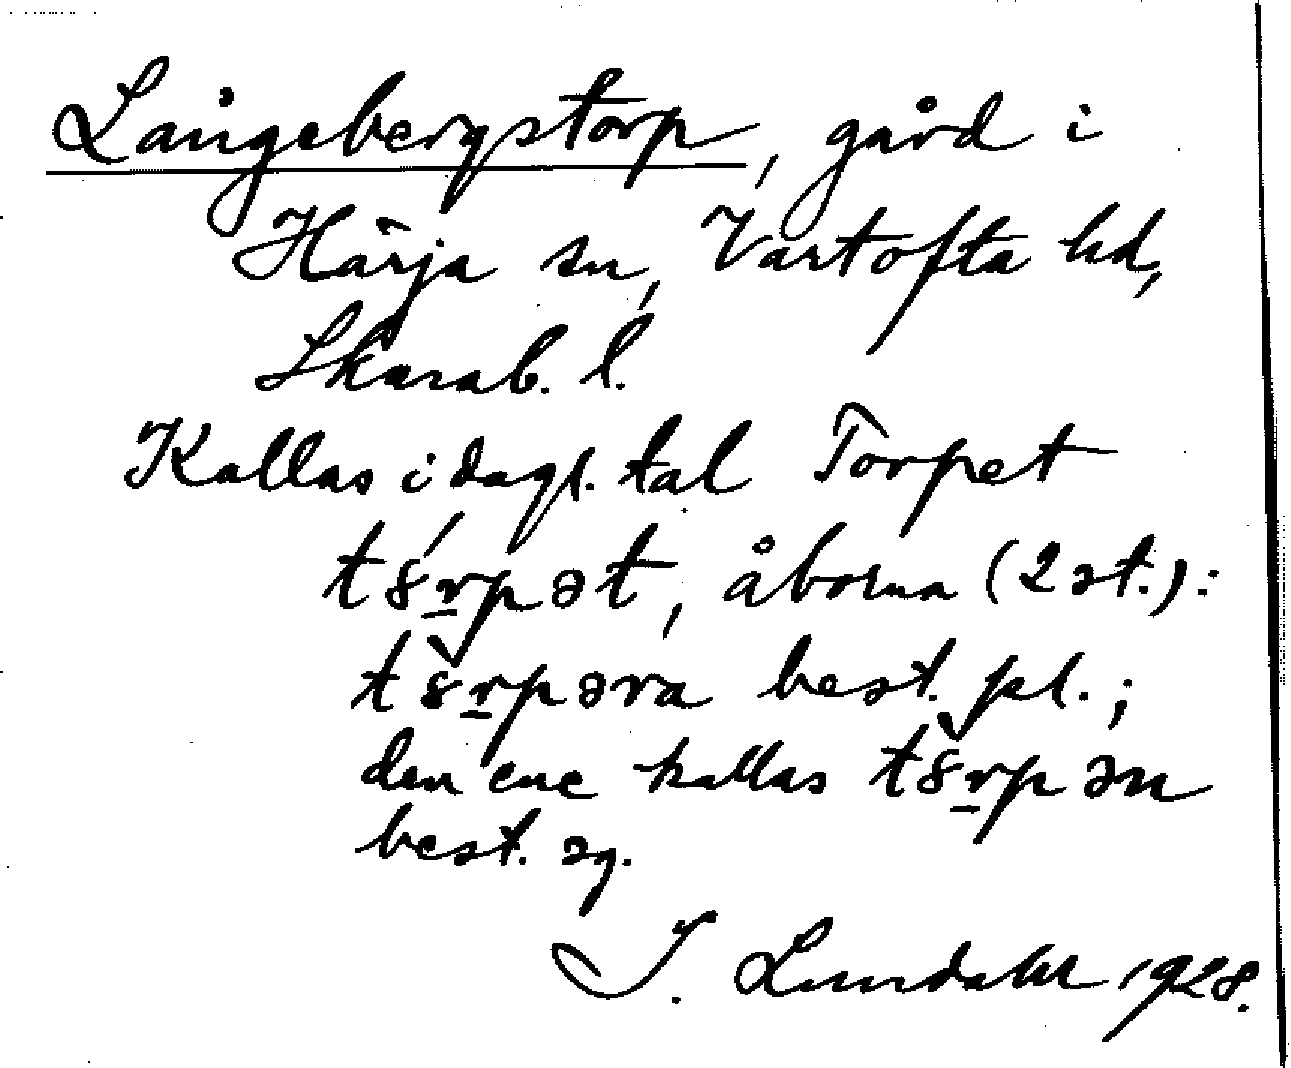 Långebergstorp, gård i
Härja sn, Vartofta hd,
Skarab. l.
Kallas i dagl. tal Torpet
tȣ́r̠pət, åborna (2 st.):
tȣ̀r̠pəra best. pl.;
den ene kallas tȣ̀r̠pən
best. sg.
I. Lundahl 1928.